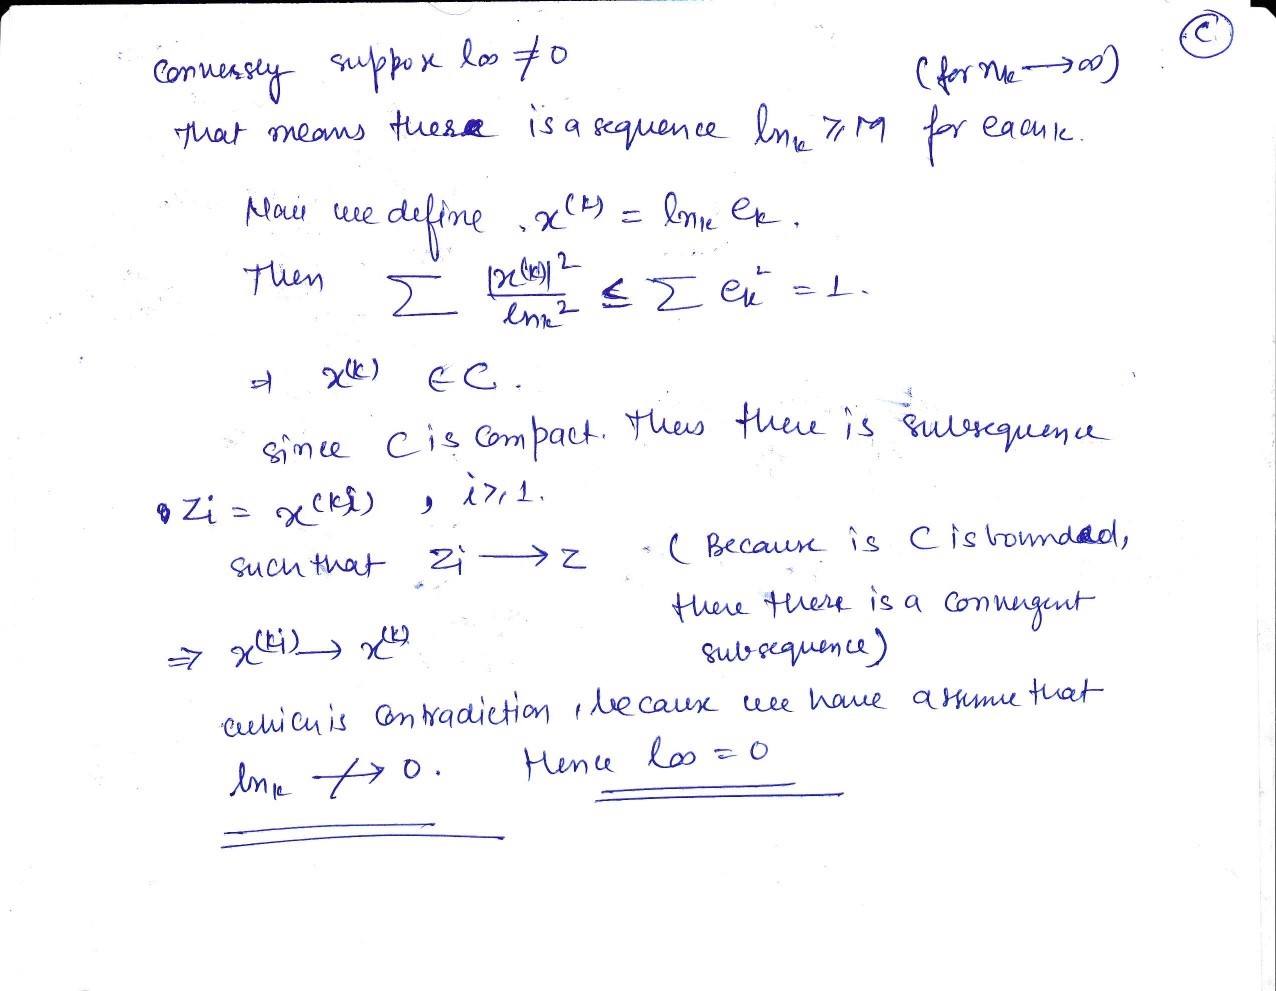 C
Conversely suppose l∞ ≠ 0
(for nk → ∞)
That means there is a sequence lnk ⩾ M for each k.
Now we define, x^(k) = lnk ek.
Then ∑ |x^(k)|² / lnk² ≤ ∑ ek² = 1.
⇒ x^(k) ∈ C.
Since C is compact. Thus there is subsequence
Zi = x^(ki) , i ⩾ 1.
such that Zi → Z (Because is C is bounded,
there there is a convergent
subsequence)
⇒ x^(ki) → x^(k)
which is contradiction, because we have assume that
lnk ↛ 0. Hence l∞ = 0